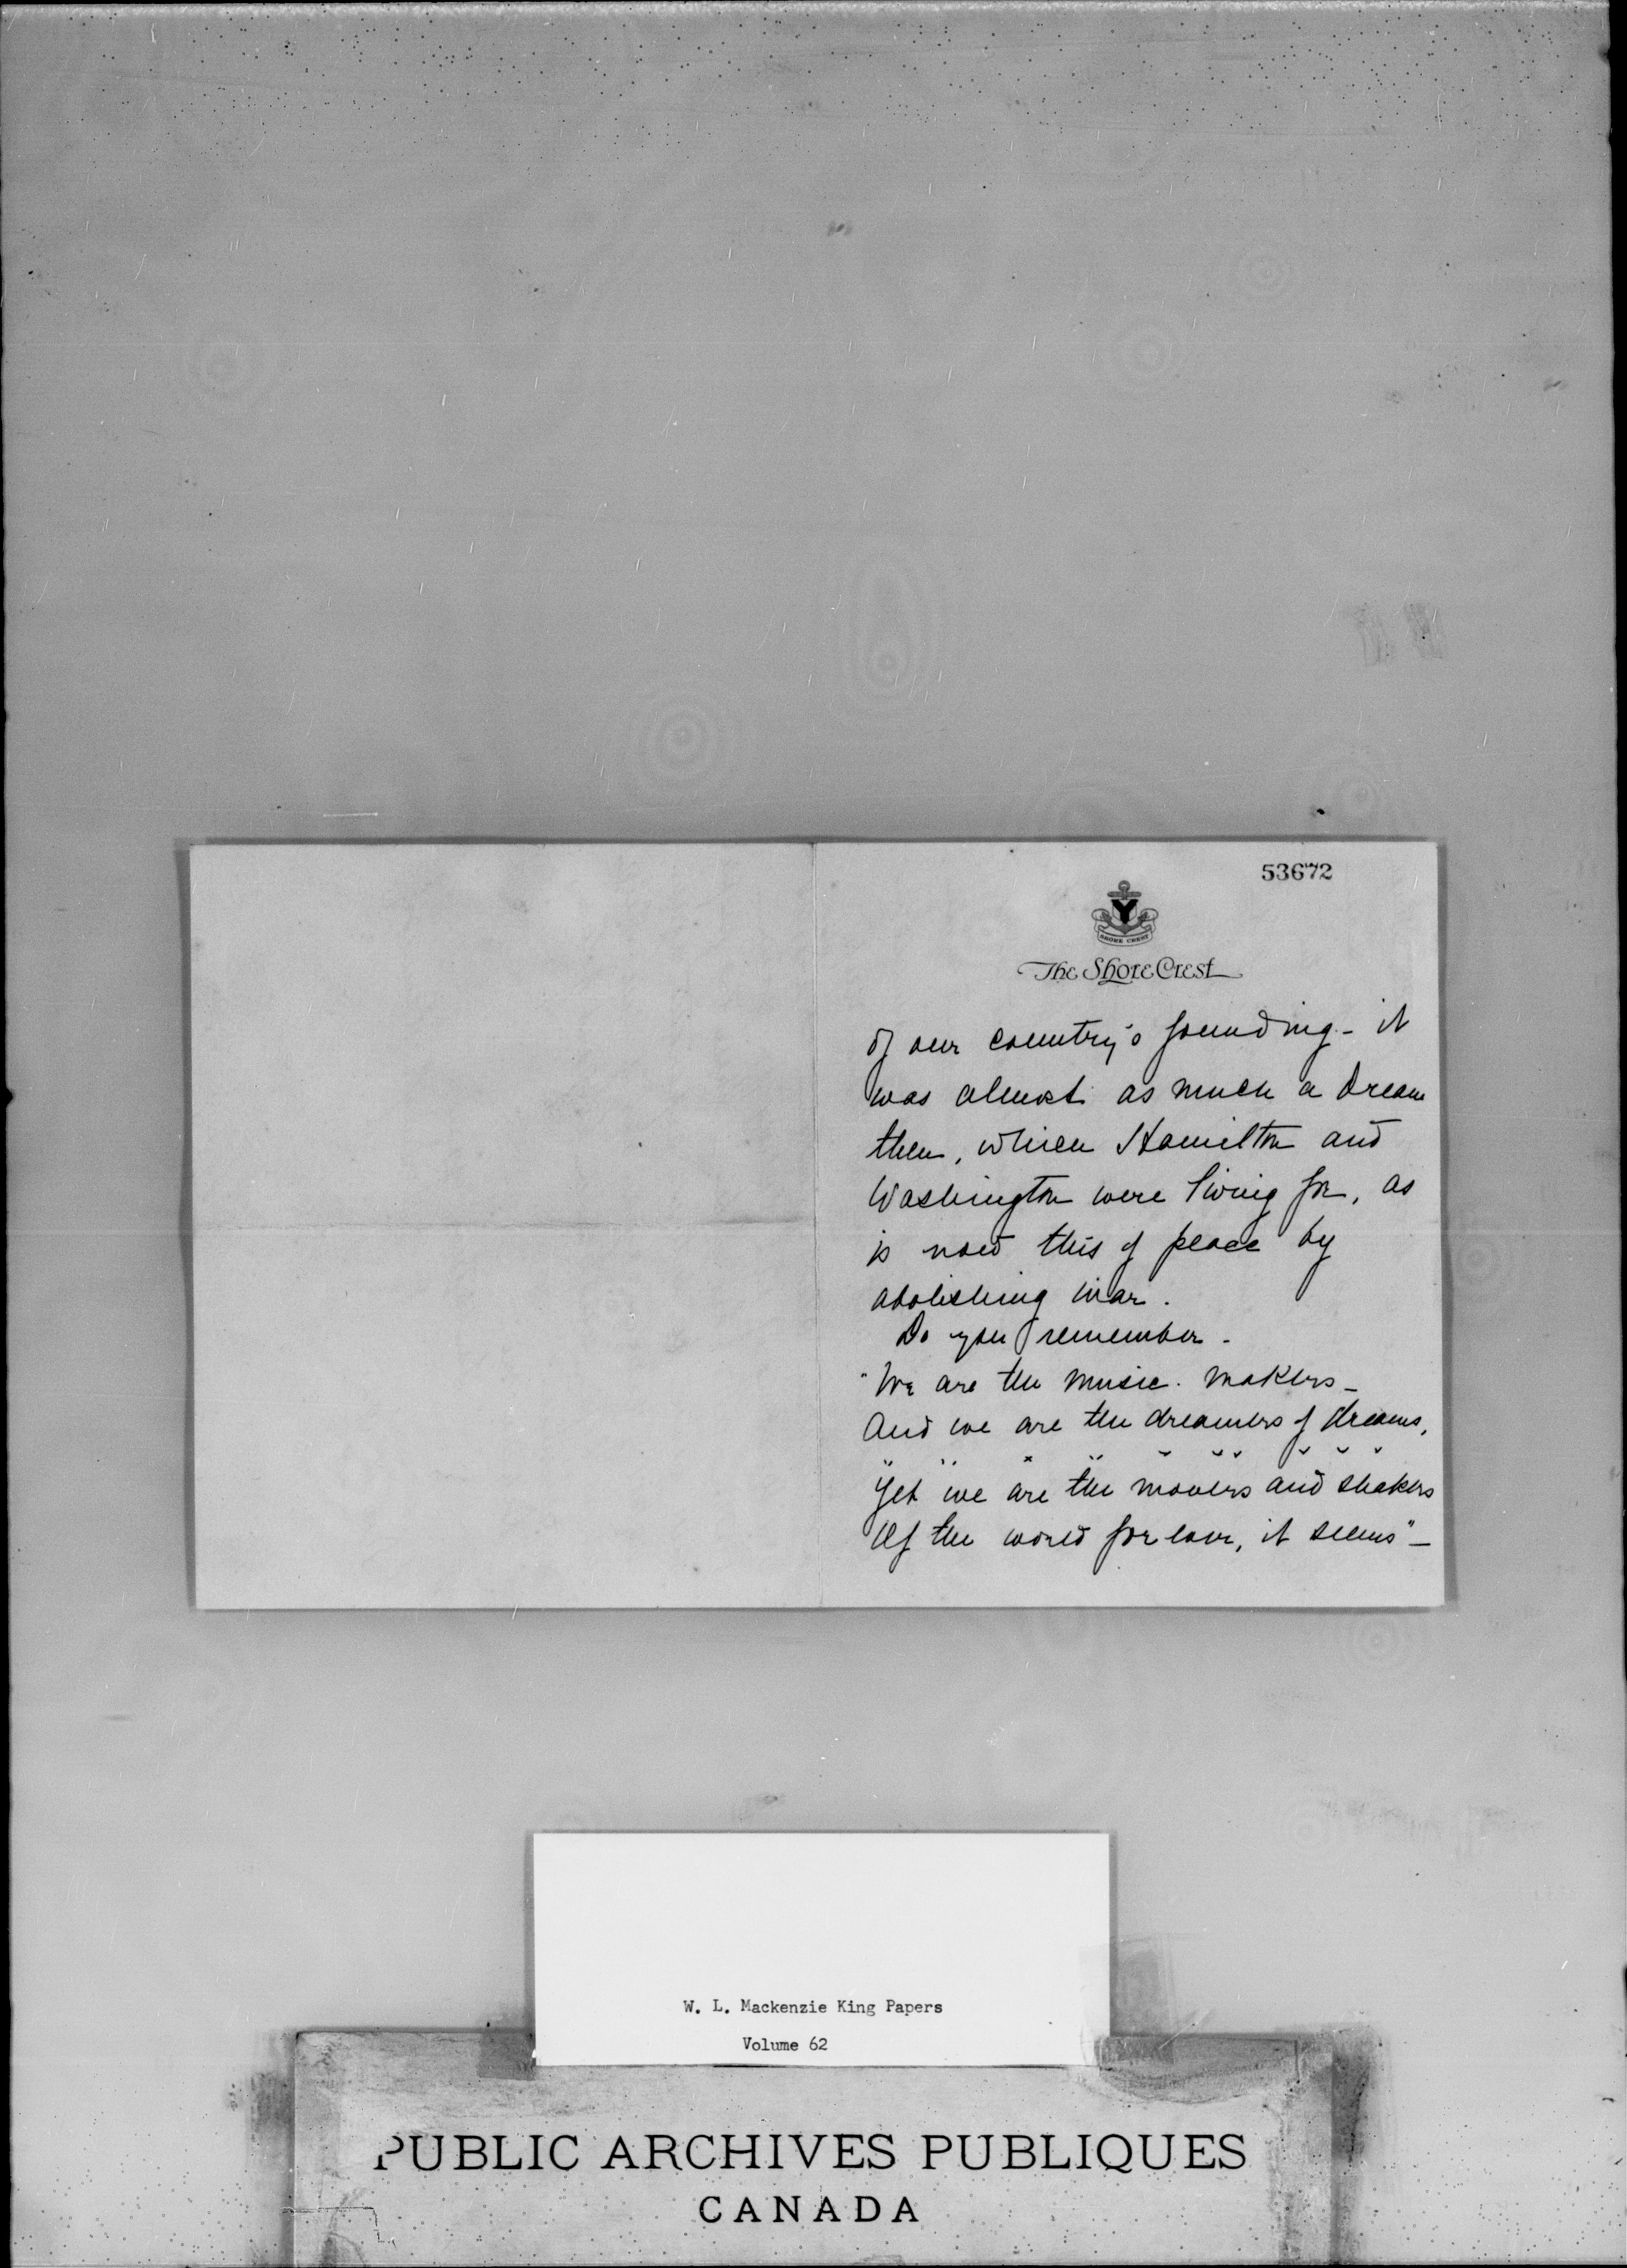 53672
Y
SHORE CREST
The Shore Crest
of our country's founding - it
was almost as much a dream
then, which Hamilton and
Washington were living for, as
is now this of peace by
abolishing war.
Do you remember -
"We are the music-makers -
And we are the dreamers of dreams,
" " " " " " " " "
Yet we are the movers and shakers
Of the world forever, it seems" -
W. L. Mackenzie King Papers
Volume 62
PUBLIC ARCHIVES PUBLIQUES
CANADA